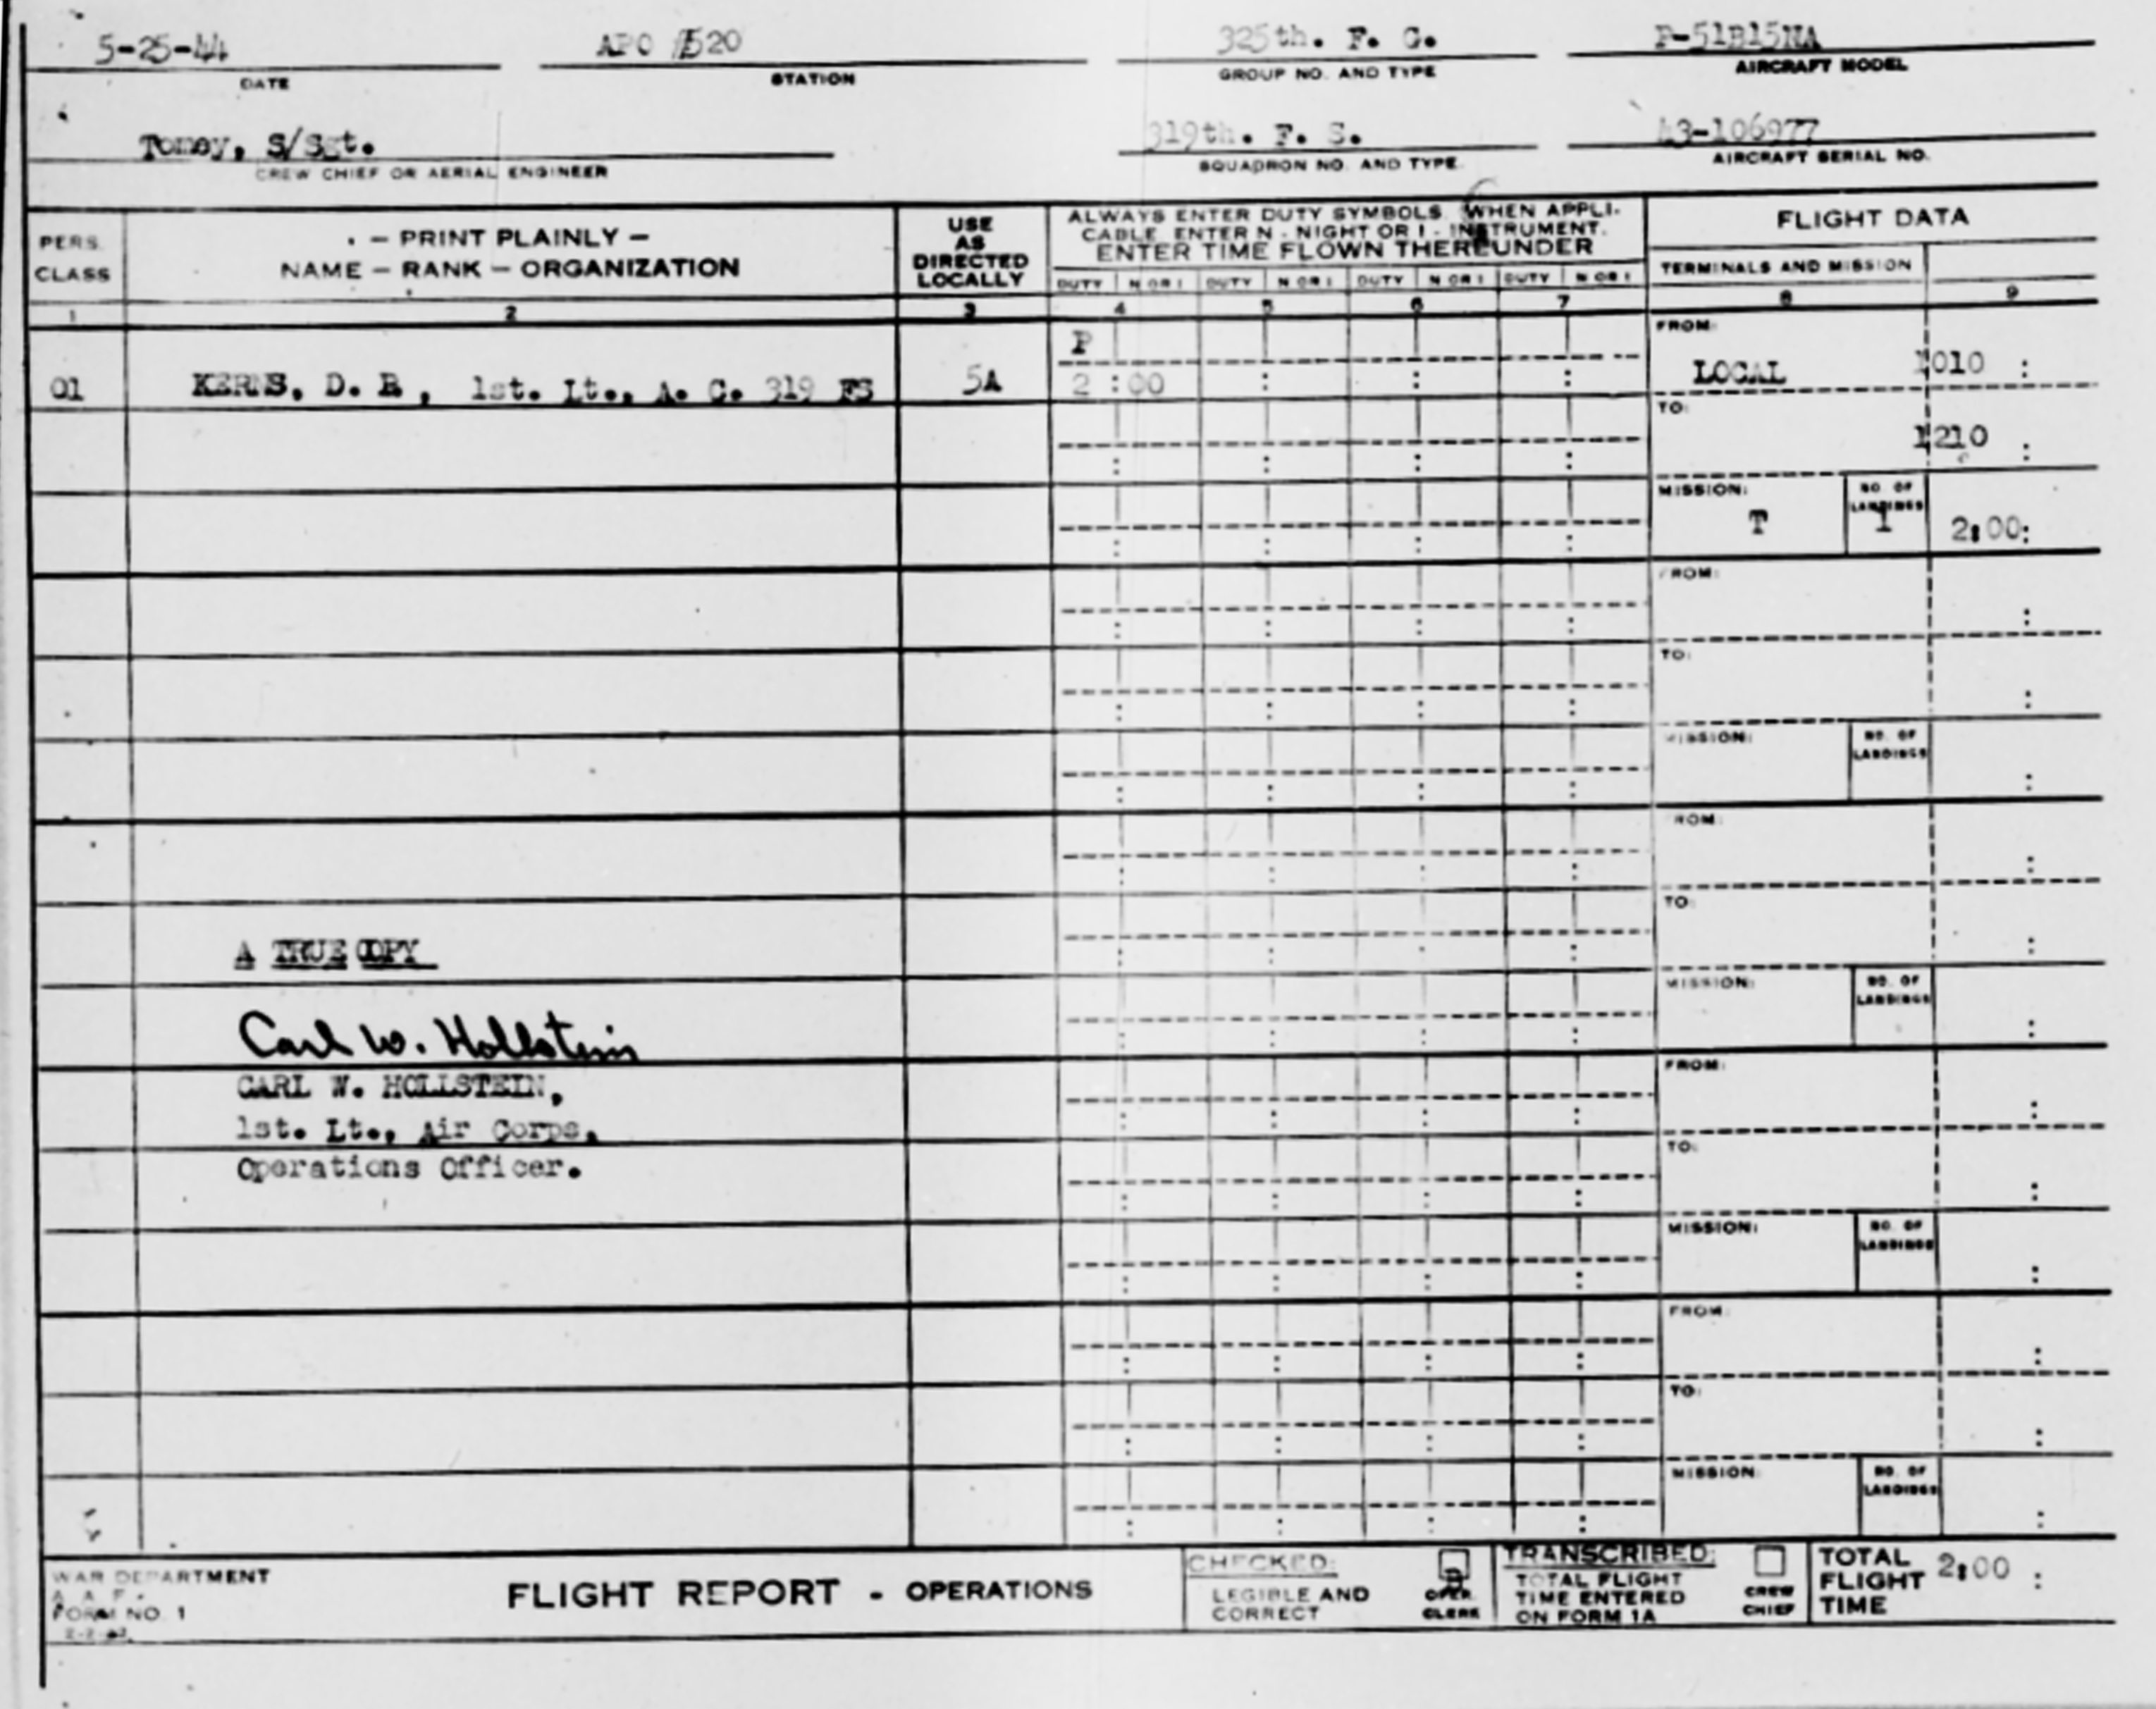 5-25-44 APO #520 325th. F. G. P-51B15NA
DATE STATION GROUP NO. AND TYPE AIRCRAFT MODEL
Tomey, S/Sgt. 319th. F. S. 43-106977
CREW CHIEF OR AERIAL ENGINEER SQUADRON NO. AND TYPE. AIRCRAFT SERIAL NO.
PERS. CLASS
- PRINT PLAINLY -
NAME - RANK - ORGANIZATION
USE
AS
DIRECTED
LOCALLY
ALWAYS ENTER DUTY SYMBOLS. WHEN APPLI-
CABLE ENTER N - NIGHT OR I - INSTRUMENT.
ENTER TIME FLOWN THEREUNDER
DUTY N OR I DUTY N OR I DUTY N OR I DUTY N OR I
FLIGHT DATA
TERMINALS AND MISSION
1 2 3 4 5 6 7 8 9
P FROM:
01 KERNS, D. B, 1st. Lt., A. C. 319 FS 5A 2:00 : : : LOCAL 1010 :
TO:
1210 :
MISSION: NO. OF LANDINGS
T 1 2:00:
FROM:
TO:
MISSION: NO. OF LANDINGS
FROM:
TO:
A TRUE COPY
MISSION: NO. OF LANDINGS
Carl W. Hollstein
CARL W. HOLLSTEIN,
FROM:
1st. Lt., Air Corps,
Operations Officer.
TO:
MISSION: NO. OF LANDINGS
FROM:
TO:
MISSION: NO. OF LANDINGS
WAR DEPARTMENT
A. A. F.
FORM NO. 1
FLIGHT REPORT - OPERATIONS
CHECKED:
LEGIBLE AND
CORRECT
OPER.
CLERK
TRANSCRIBED:
TOTAL FLIGHT
TIME ENTERED
ON FORM 1A
CREW
CHIEF
TOTAL
FLIGHT
TIME
2:00 :